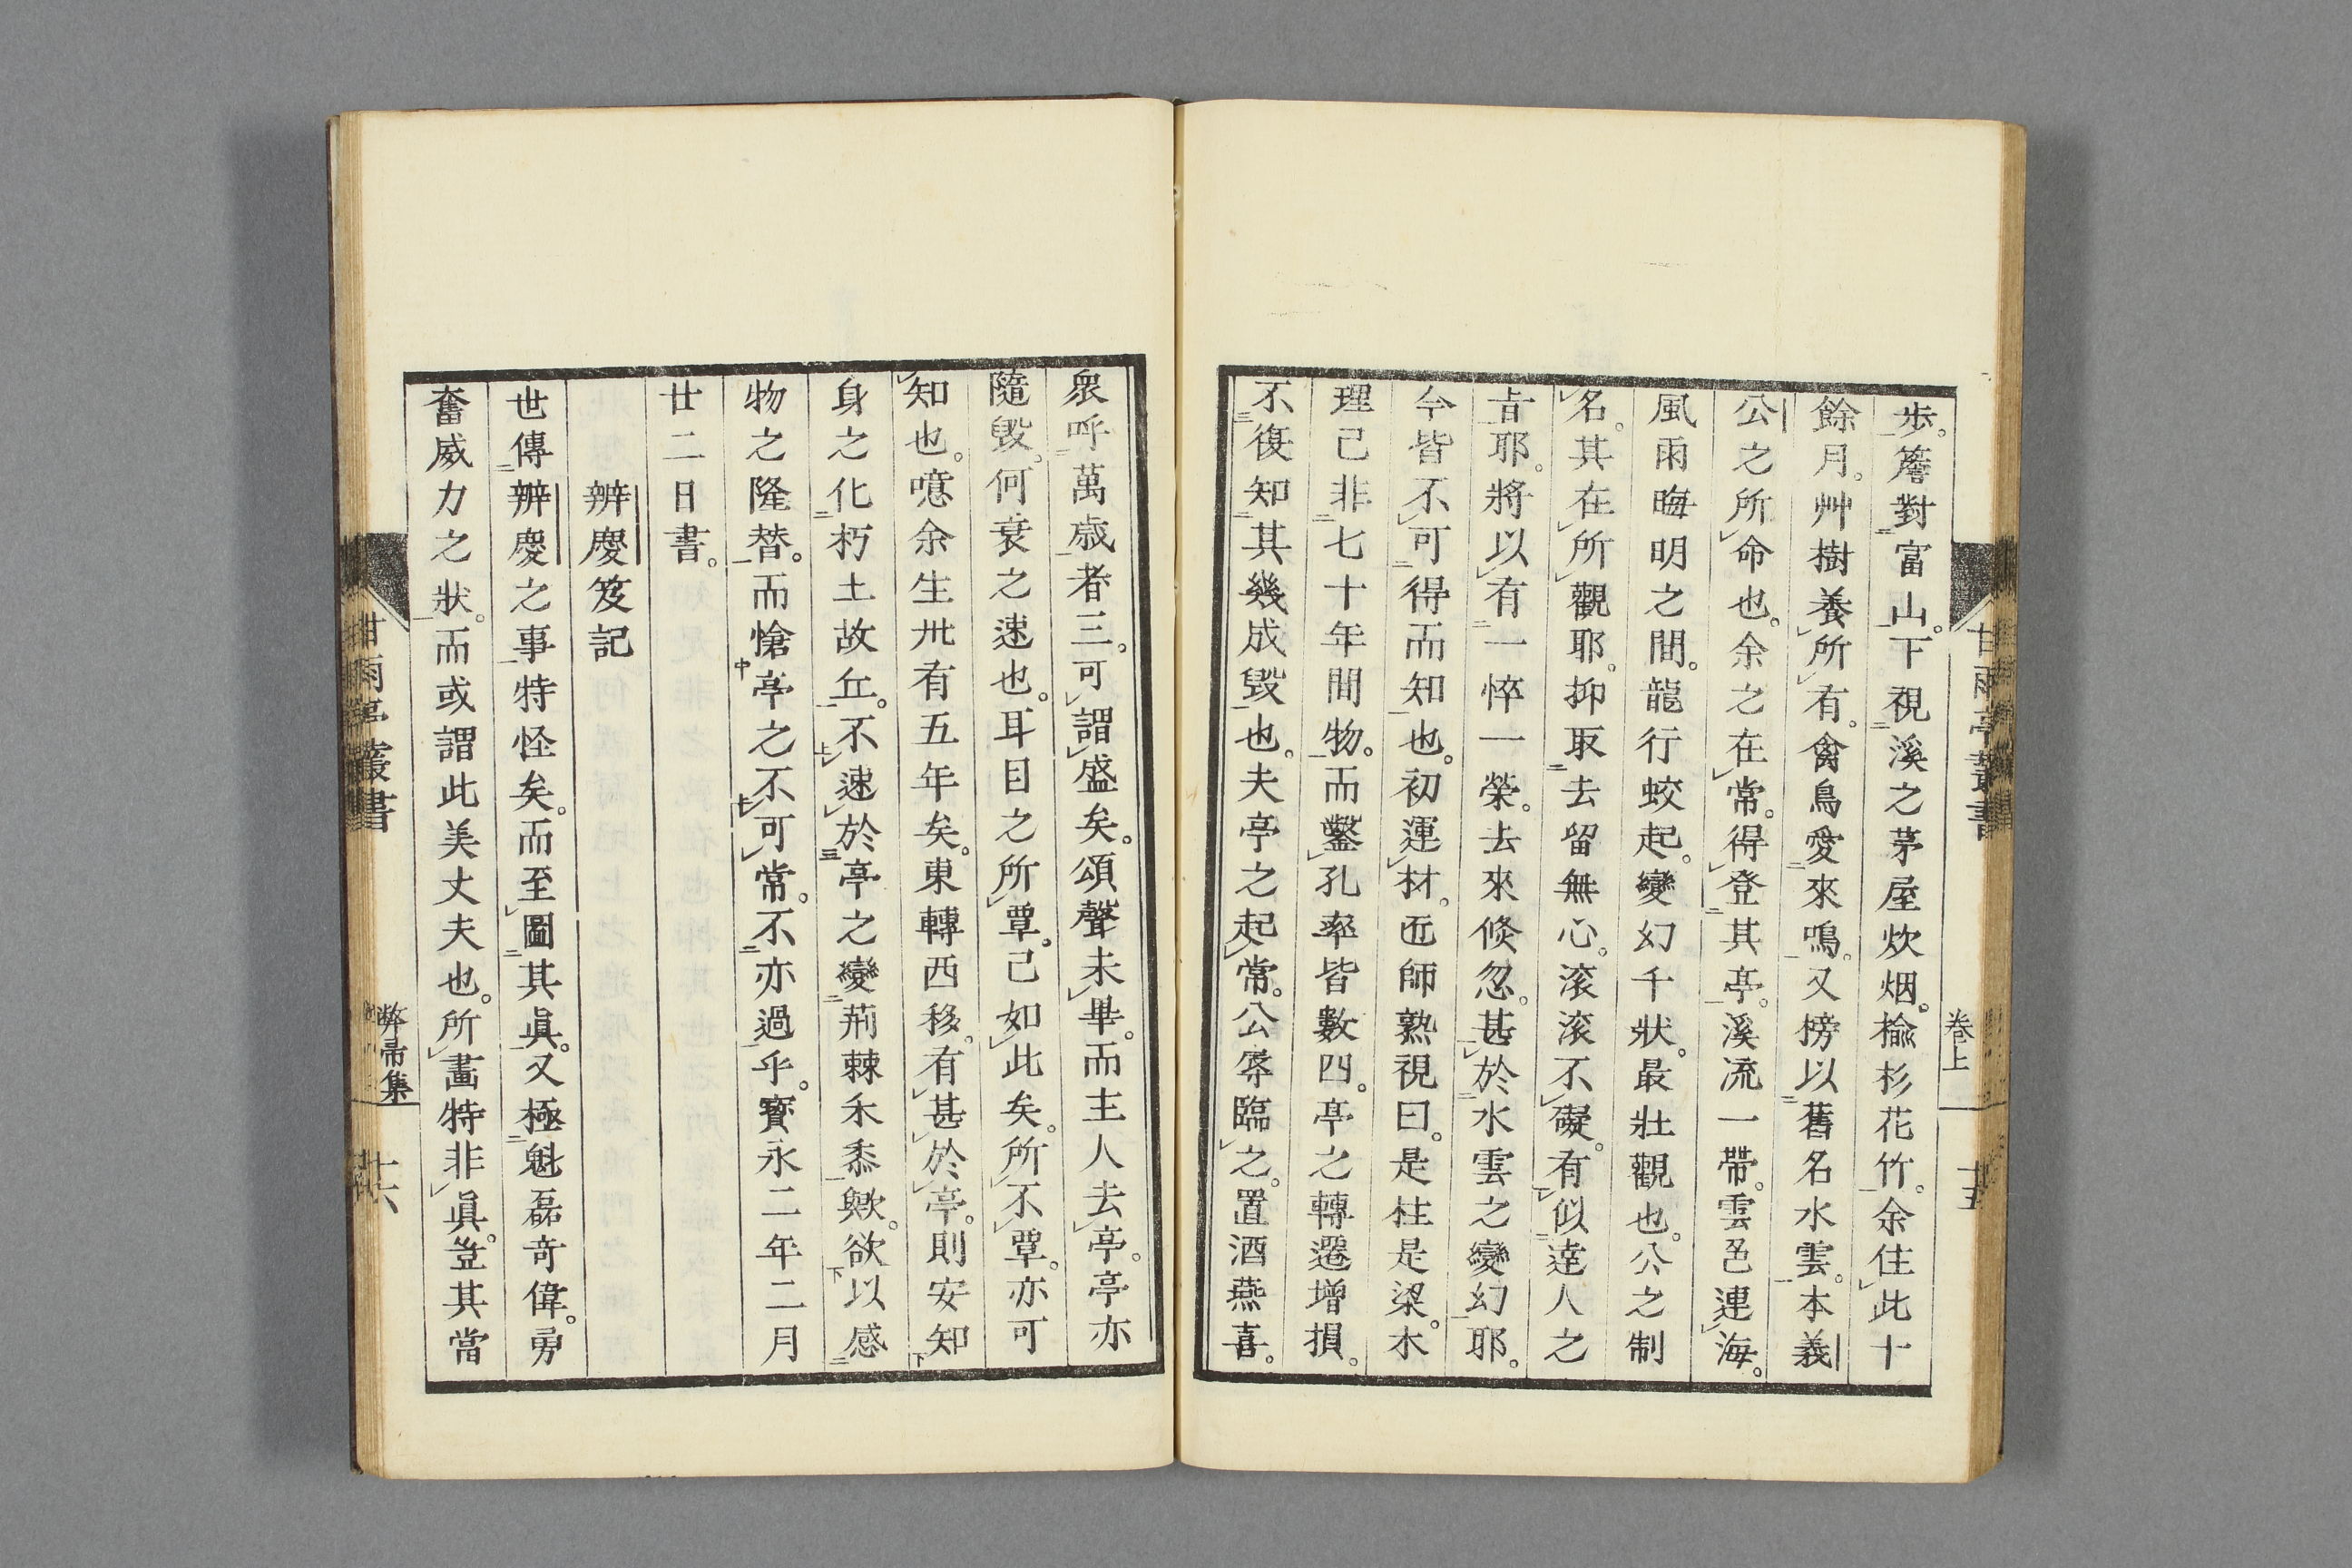 步。簷對富山。下視溪之茅屋炊烟。楡杉花竹。余住此十
餘月。艸樹養所有。禽鳥愛來鳴。又榜以舊名水雲。本義
公之所命也。余之在常。得登其亭。溪流一帶。雲邑連海。
風雨晦明之間。龍行蛟起。變幻千狀。最壯觀也。公之制
名。其在所觀耶。抑取去留無心。滚滚不礙。有似逹人之
耶。將以有一悴一榮。去來倐忽。甚於水雲之變幻耶。
今皆不可得而知也。初運材。匠師熟視曰。是柱是梁。木
理己非七十年間物。而鑿孔率皆數四。亭之轉遷增損。
不復知其幾成毁也。夫亭之起常。公辱臨之。置酒燕喜。
衆呼萬歳者三。可謂盛矣。頌聲未畢。而主人去亭。亭亦
隨毁。何衰之速也。耳目之所覃。己如此矣。所不覃。亦可
知也。噫余生卅有五年矣。東轉西移。有甚於亭。則安知
身之化朽土故丘。不速於亭之變荊棘禾黍歟。欲以感
物之隆替。而愴亭之不可常。不亦過乎。寶永二年二月
廿二日書。
辨慶笈記
世傳辨慶之事特怪矣。而至圖其眞。又極魁磊奇偉。勇
奮威力之狀。而或謂此美丈夫也。所畵特非眞。豈其當
甘雨亭叢書
卷上
十五
甘雨亭叢書
弊帚集
十六